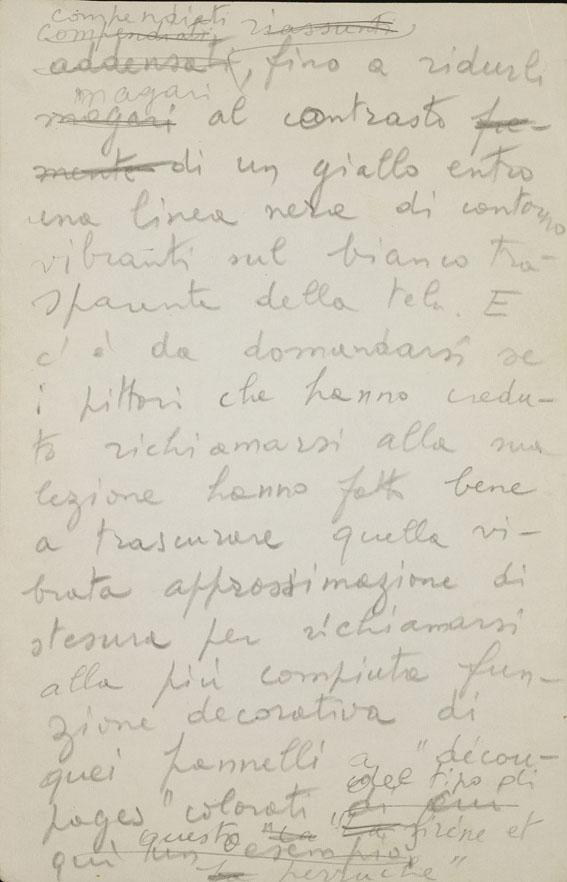 compendiati
compendiati riassunti
addensati, fino a ridurli
magari
magari al contrasto fre-
mente di un giallo entro
una linea nera di contorno
vibranti sul bianco tra-
sparente della tela. E
c'è da domandarsi se
i pittori che hanno credu-
to richiamarsi alla sua
lezione hanno fatto bene
a trascurare quella vi-
brata approssimazione di
stesura per richiamarsi
alla più compiuta fun-
zione decorativa di
quei pannelli a "décou-
pages" colorati di cui
del tipo di
questo "La "La sirène et
qui un esempio.
la perruche"